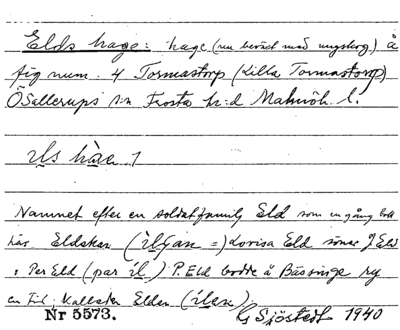 Elds hage: hage (nu bevext med ungskog) å
fig num. 4 Tormastorp (Lilla Tormastorp)
Ö Sallerups sn Frosta hd Malmöh. l.
ils hàɐ 1
Namnet efter en soldatfamilj Eld som en gång bott
här. Eldskan (ilsan =) Lovisa Eld
Per Eld (par il) P. Eld bodde å Bässinge ry
en tid. Kallades Elden (ilen)
Nr 5573. G Sjöstedt 1940